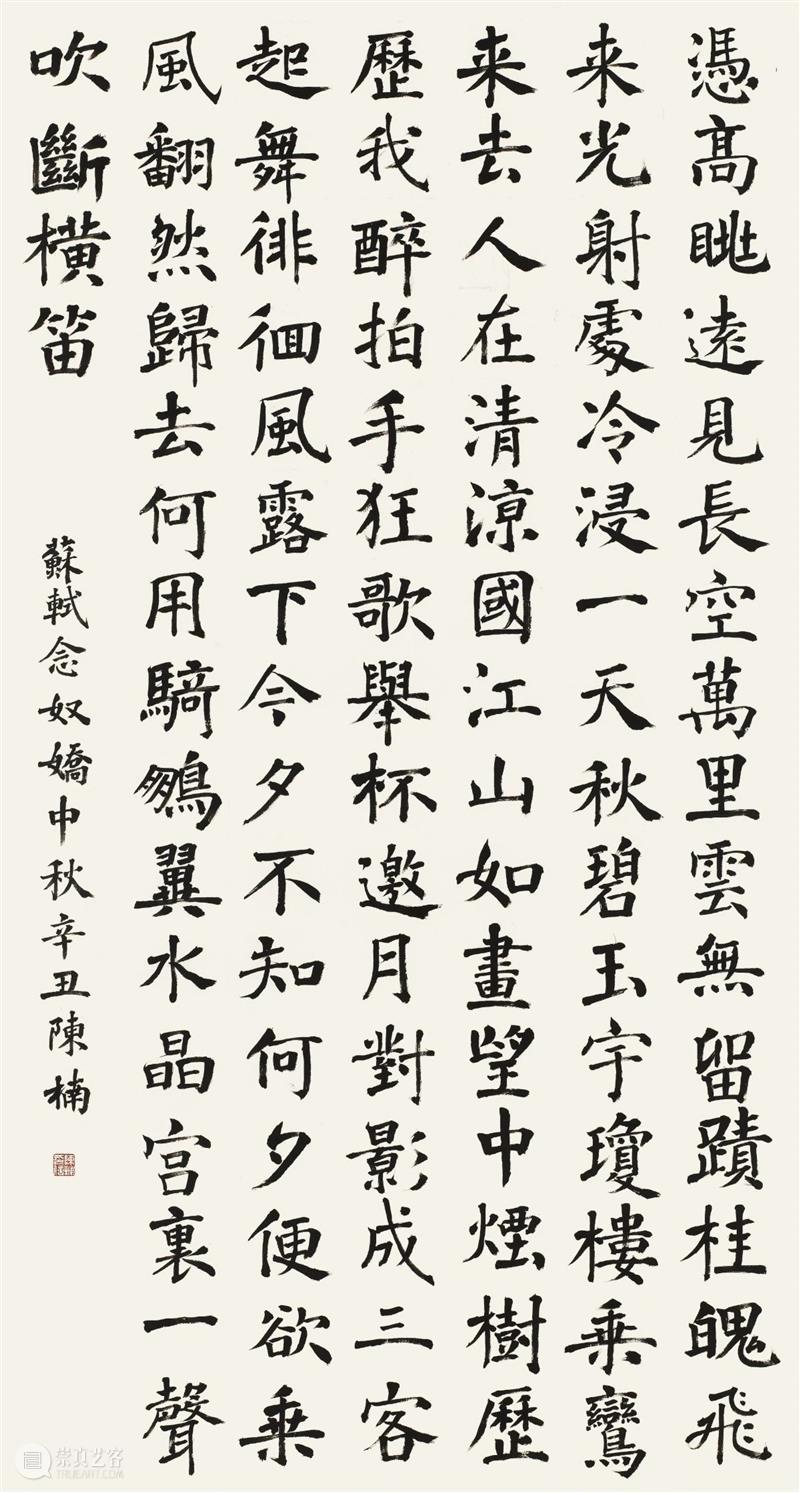 憑高眺遠見長空萬里雲無留蹟桂魄飛
来光射處冷浸一天秋碧玉宇瓊樓乘鸞
来去人在清涼國江山如畫望中煙樹歷
歷我醉拍手狂歌舉杯邀月對影成三客
起舞徘徊風露下今夕不知何夕便欲乘
風翻然歸去何用騎鵬翼水晶宫裏一聲
吹斷橫笛
蘇軾念奴嬌中秋辛丑陳楠
崇真艺客
TRUEART.COM